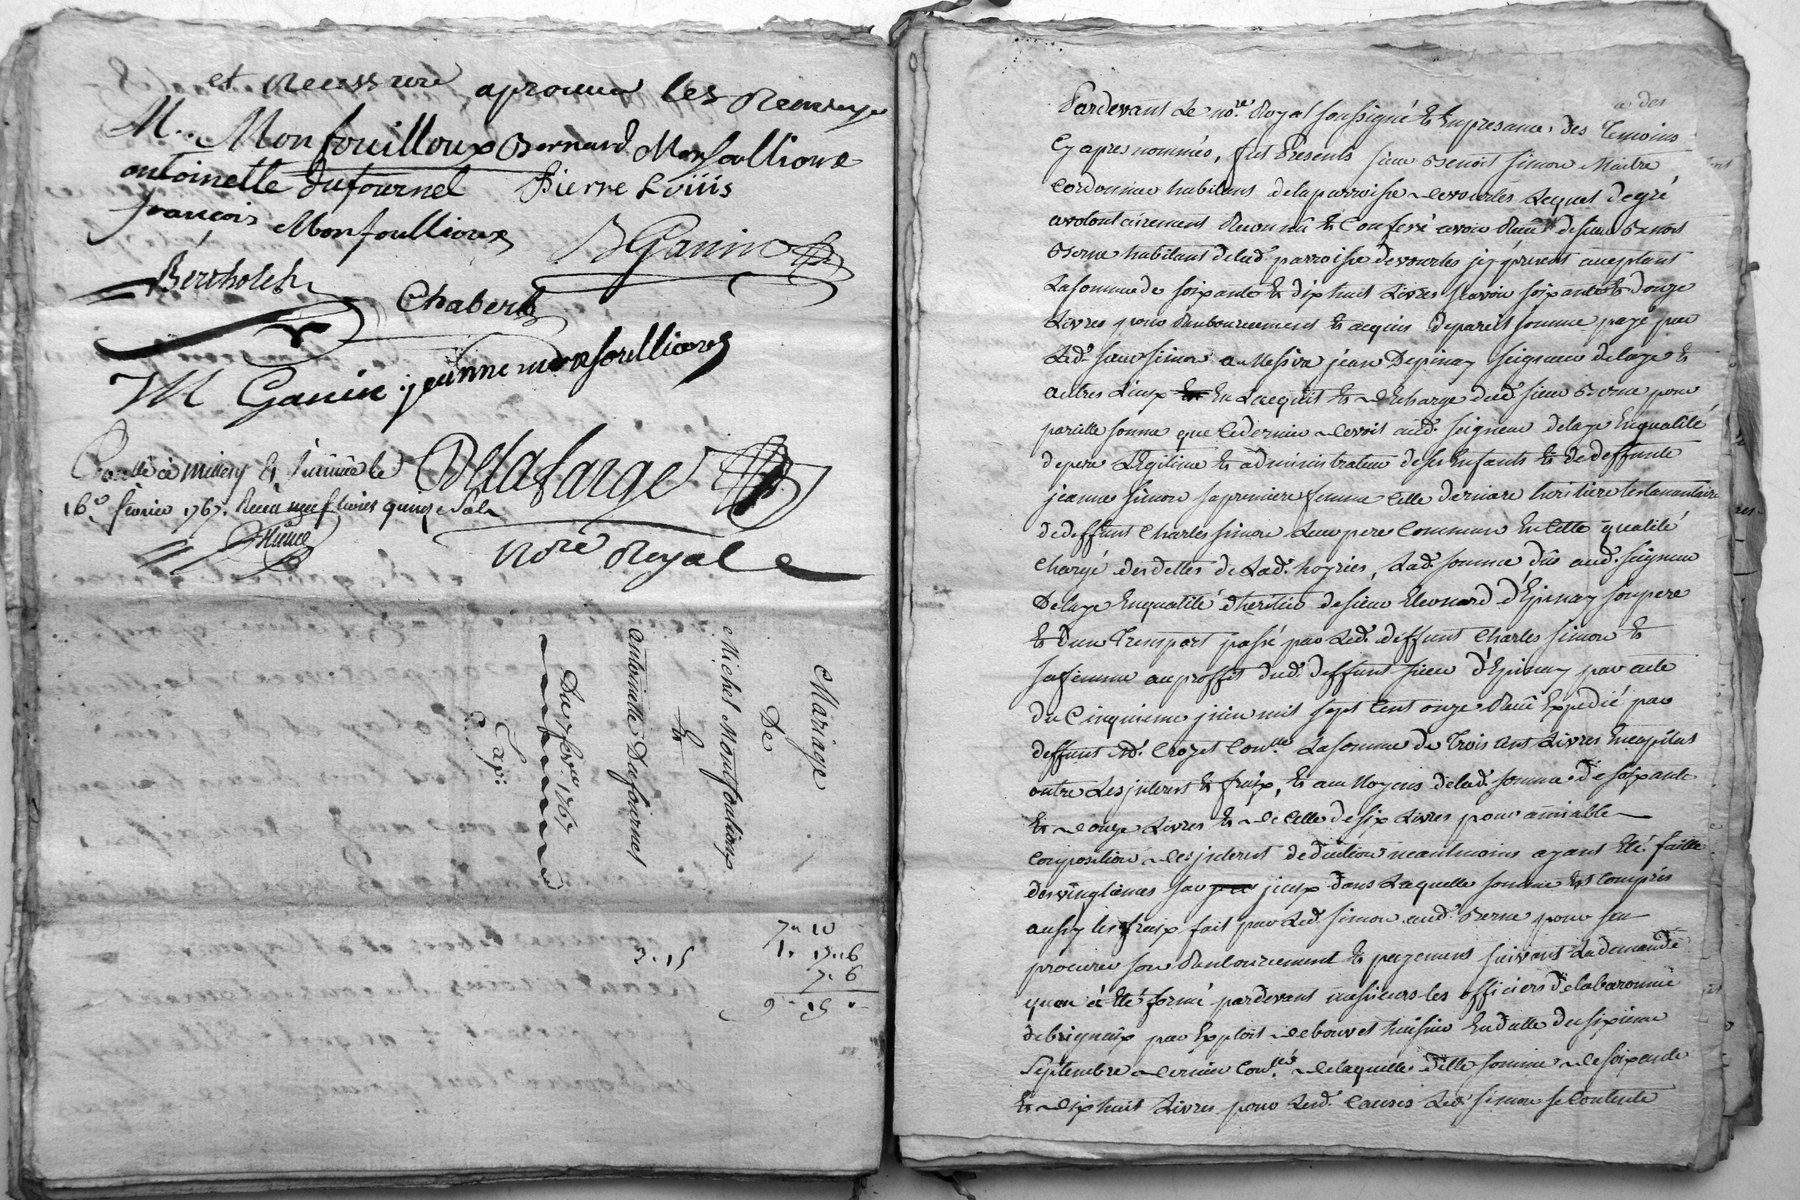 et necessaire aprouvé les Renvoys
M. Monfouilloux Bernard Monfoullioux
antoinette dufournel Pierre Loüis
françois Monfoullioux B Ganin
Bertholet Chabert
M Ganin jeanne monfoullioux
Controllé à millery le
16e février 1767. Reçu neuf livres quinze sols
Delafarge
Nore Royal
Mariage
De
Michel Monfoullioux
Et
Antoinette Dufournel
Du 7 fevrier 1767
Exp:
7 " 10
1 " 19 " 6
7 " 6
9 " 15 "
3 " 15
Pardevant Le nore Royal soussigné & En presance des Temoins
Cy apres nommés, fut Présent sieur Benoit simon Maitre
Cordonnier habitant de la parroisse de vourles Lequel de gré
a volontairement Reconnû & Confessé avoir Reçû de sieur Benoit
Berne habitant de lad. parroisse de vourles icy présent acceptant
La somme de soixante & dixhuit Livres sçavoir soixante & douze
Livres pour Remboursement & acquis de pareil somme payé par
Led. sieur simon a Messire jean Depinay seigneur de laye &
autres Lieux En Lacquit & décharge dud. sieur Berne pour
pareille somme que ce dernier devoit aud. seigneur delaye En qualité
de pere Légitime & administrateur de ses Enfants & de deffunte
jeanne simon sa premiere femme Celle derniere heritiere testamentaire
de deffunt Charles simon Leur pere Commun En Cette qualité
Chargé des dettes de Lad. hoyries, Lad. somme dûe aud. seigneur
Delaye En qualité d'heritier de sieur Eleonard d'Epinay son pere
& d'un Transport passé par Led. deffunt Charles simon &
sa femme au proffit dud. deffunt sieur d'Epinay par acte
du Cinquieme juin mil sept Cent onze Reçû Expedié par
deffunt Me. Crozet Conllé La somme de Trois cent Livres En capital
outre Les interest & fraix, & au Moyens de lad. somme de soixante
& douze Livres & de Celle de six Livres pour amiable
Composition des interest deduction neantmoins ayant Eté faitte
des vingtiemes sur iceux dans Laquelle somme Est Compris
aussy les fraix fait par Led. simon aud. Berne pour son
procurer son Rembourcement & payement suivant La demande
quon à Eté formé pardevant messieurs les officiers de la baronnie
de brignaix par Exploit de bouvet huissier En datte du sixieme
Septembre dernier Conllé de laquelle ditte somme de soixante
& dix huit Livres pour Lesd. Causes Led. simon se Contente